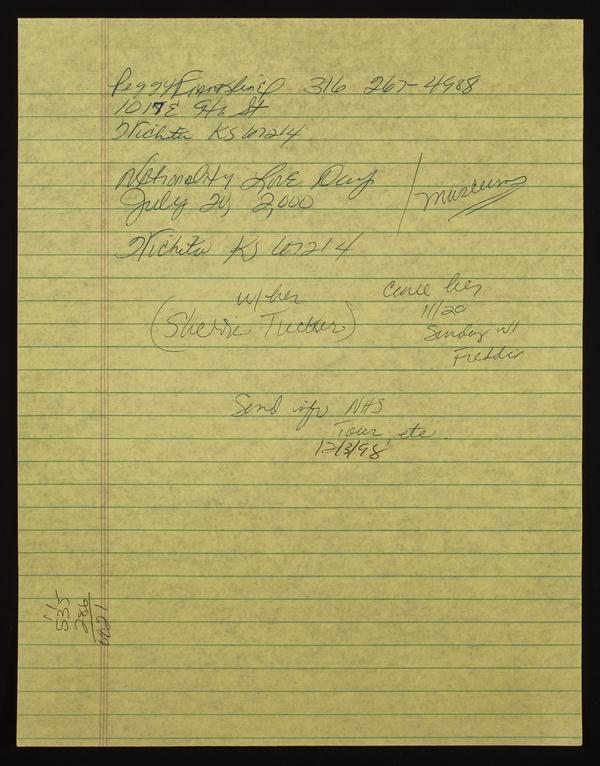 Peggy 316 267-4988
1017 E 9th St
Wichita KS 67214
Nationality Love Day
July 20, 2,000 / Museum
Wichita KS 67214
w/ her
(Sherrie Tucker)
Call her
11/20
Sunday w/
Freddie
Send info NHS
Tour, etc
12/3/98
11
535
286